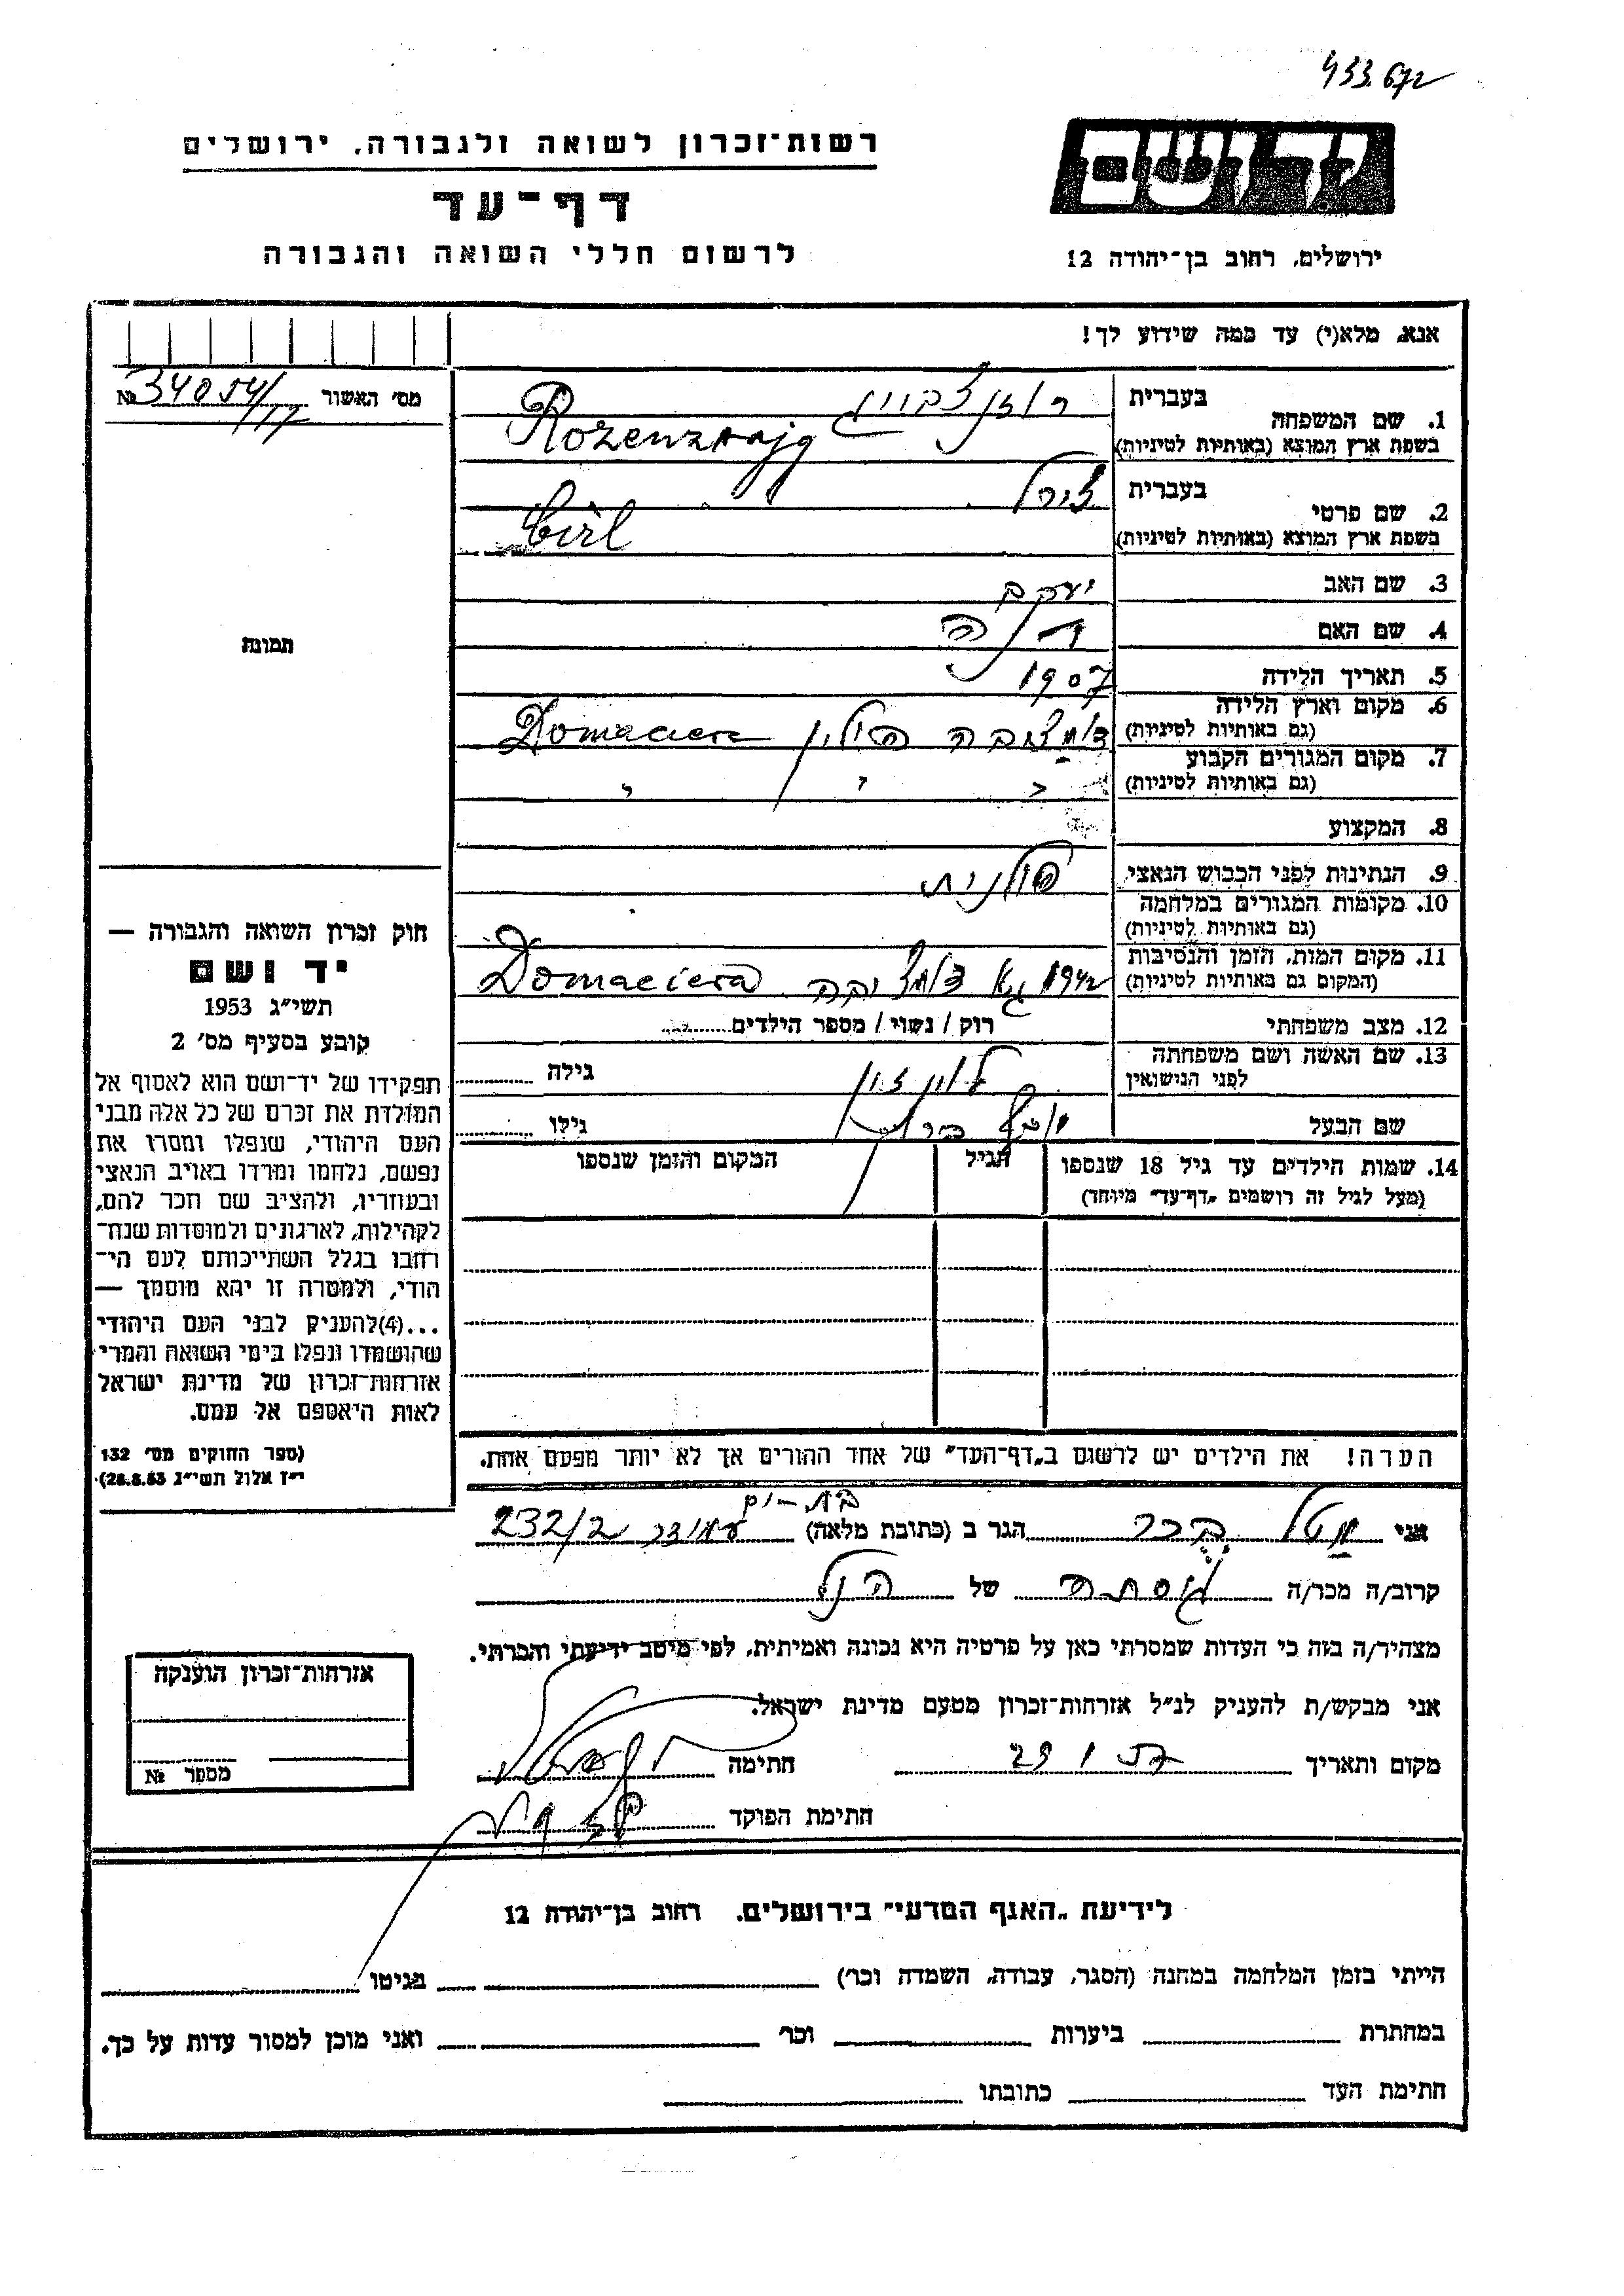 433.672
רשות־זכרון לשואה ולגבורה, ירושלים
ידושם
דף־עד
לרשום חללי השואה והגבורה
ירושלים, רחוב בן־יהודה 12
אנא, מלא(י) עד כמה שידוע לך!
מס׳ האשור № 34054/
1. שם המשפחה
בעברית
רוזנצבייג
בשפת ארץ המוצא (באותיות לטיניות)
Rozenzwajg
2. שם פרטי
בעברית
צירל
בשפת ארץ המוצא (באותיות לטיניות)
Cirl
3. שם האב יעקב
4. שם האם
5. תאריך הלידה 1907
6. מקום וארץ הלידה
(גם באותיות לטיניות)
פולין
7. מקום המגורים הקבוע
(גם באותיות לטיניות)
8. המקצוע
9. הנתינות לפני הכבוש הנאצי פולנית
10. מקומות המגורים במלחמה
(גם באותיות לטיניות)
11. מקום המות, הזמן והנסיבות
(המקום גם באותיות לטיניות)
1942 Domaciera
12. מצב משפחתי רוק / נשוי / מספר הילדים
13. שם האשה ושם משפחתה
לפני הנישואין
גילה
שם הבעל
גילו
14. שמות הילדים עד גיל 18 שנספו
(מעל לגיל זה רושמים „דף־עד״ מיוחד)
הגיל
המקום והזמן שנספו
תמונה
חוק זכרון השואה והגבורה —
יד ושם
תשי״ג 1953
קובע בסעיף מס׳ 2
תפקידו של יד־ושם הוא לאסוף אל
המולדת את זכרם של כל אלה מבני
העם היהודי, שנפלו ומסרו את
נפשם, נלחמו ומרדו באויב הנאצי
ובעוזריו, ולהציב שם וזכר להם,
לקהילות, לארגונים ולמוסדות שנח־
רבו בגלל השתייכותם לעם הי־
הודי, ולמטרה זו יהא מוסמך —
...(4)להעניק לבני העם היהודי
שהושמדו ונפלו בימי השואה והמרי
אזרחות־זכרון של מדינת ישראל
לאות היאספם אל עמם.
(ספר החוקים מס׳ 132
י״ז אלול תשי״ג 28.8.53)
הערה! את הילדים יש לרשום ב„דף־העד״ של אחד ההורים אך לא יותר מפעם אחת.
בת-ים
אני הגר ב (כתובת מלאה) 232/2
קרוב/ה מכר/ה גיסתה של הנ״ל
מצהיר/ה בזה כי העדות שמסרתי כאן על פרטיה היא נכונה ואמיתית, לפי מיטב ידיעתי והכרתי.
אני מבקש/ת להעניק לנ״ל אזרחות־זכרון מטעם מדינת ישראל.
מקום ותאריך חתימה
חתימת הפוקד
אזרחות־זכרון הוענקה
מספר №
לידיעת „האגף המדעי״ בירושלים, רחוב בן־יהודה 12
הייתי בזמן המלחמה במחנה (הסגר, עבודה, השמדה וכו׳) בגיטו
במחתרת ביערות וכו׳ ואני מוכן למסור עדות על כך.
חתימת העד כתובתו